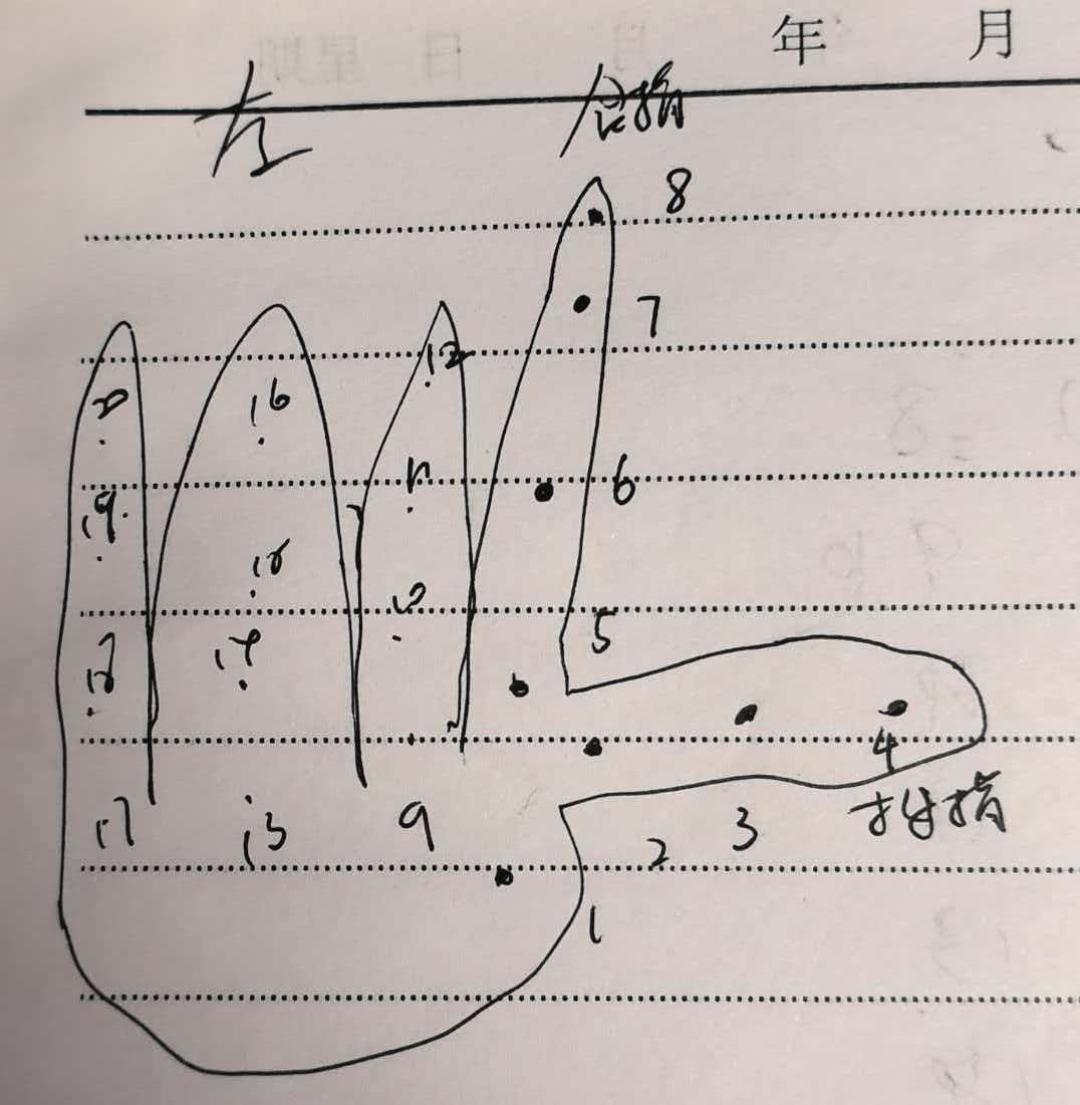 年 月
左 食指
8
7
12
16
11
6
19
10
5
18
4
拇指
17 13 9 3
2
1